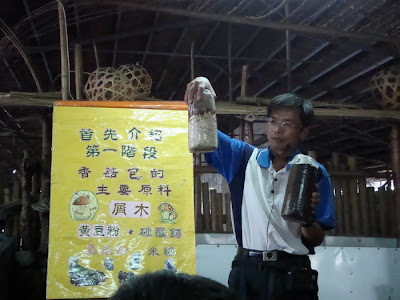 首先介紹
第一階段
香菇包的
主要原料
屑木
黃豆粉·碳酸鈣
米糠